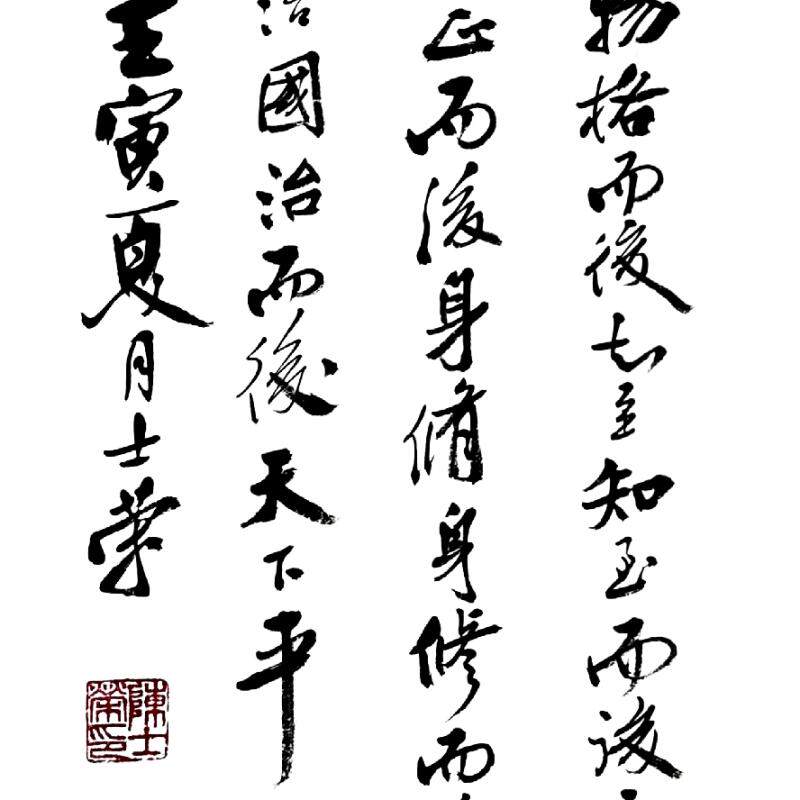 物格而後知至知至而後
正而後身脩身修而
治國治而後天下平
壬寅夏月士榮
陳士榮印